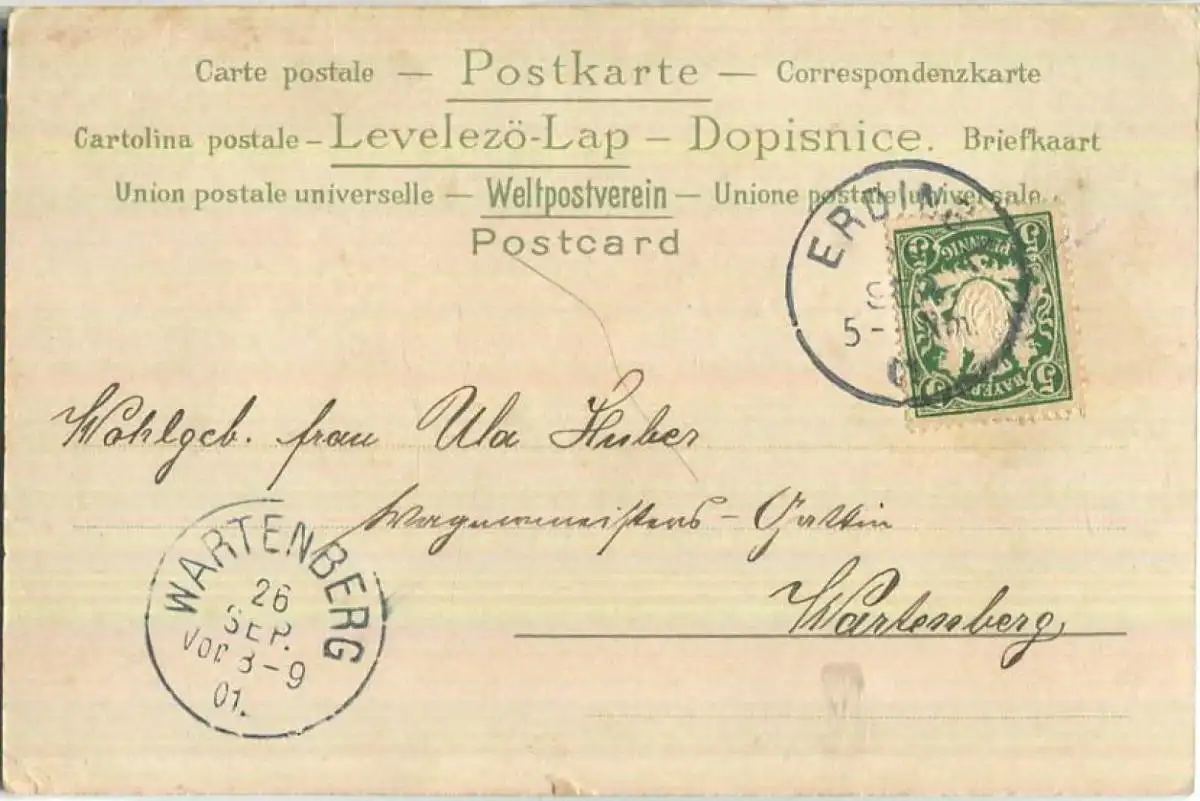 Carte postale — Postkarte — Correspondenzkarte
Cartolina postale – Levelezö-Lap – Dopisnice. Briefkaart
Union postale universelle — Weltpostverein — Unione postale universale.
Postcard
ERDING
SEP
5 - Nm.
01
5 PFENNIG 5
5 BAYERN 5
Wohlgeb. frau Ula Huber
Wagnermeisters-Gattin
Wartenberg
WARTENBERG
26
SEP.
Vor. 8-9
01.